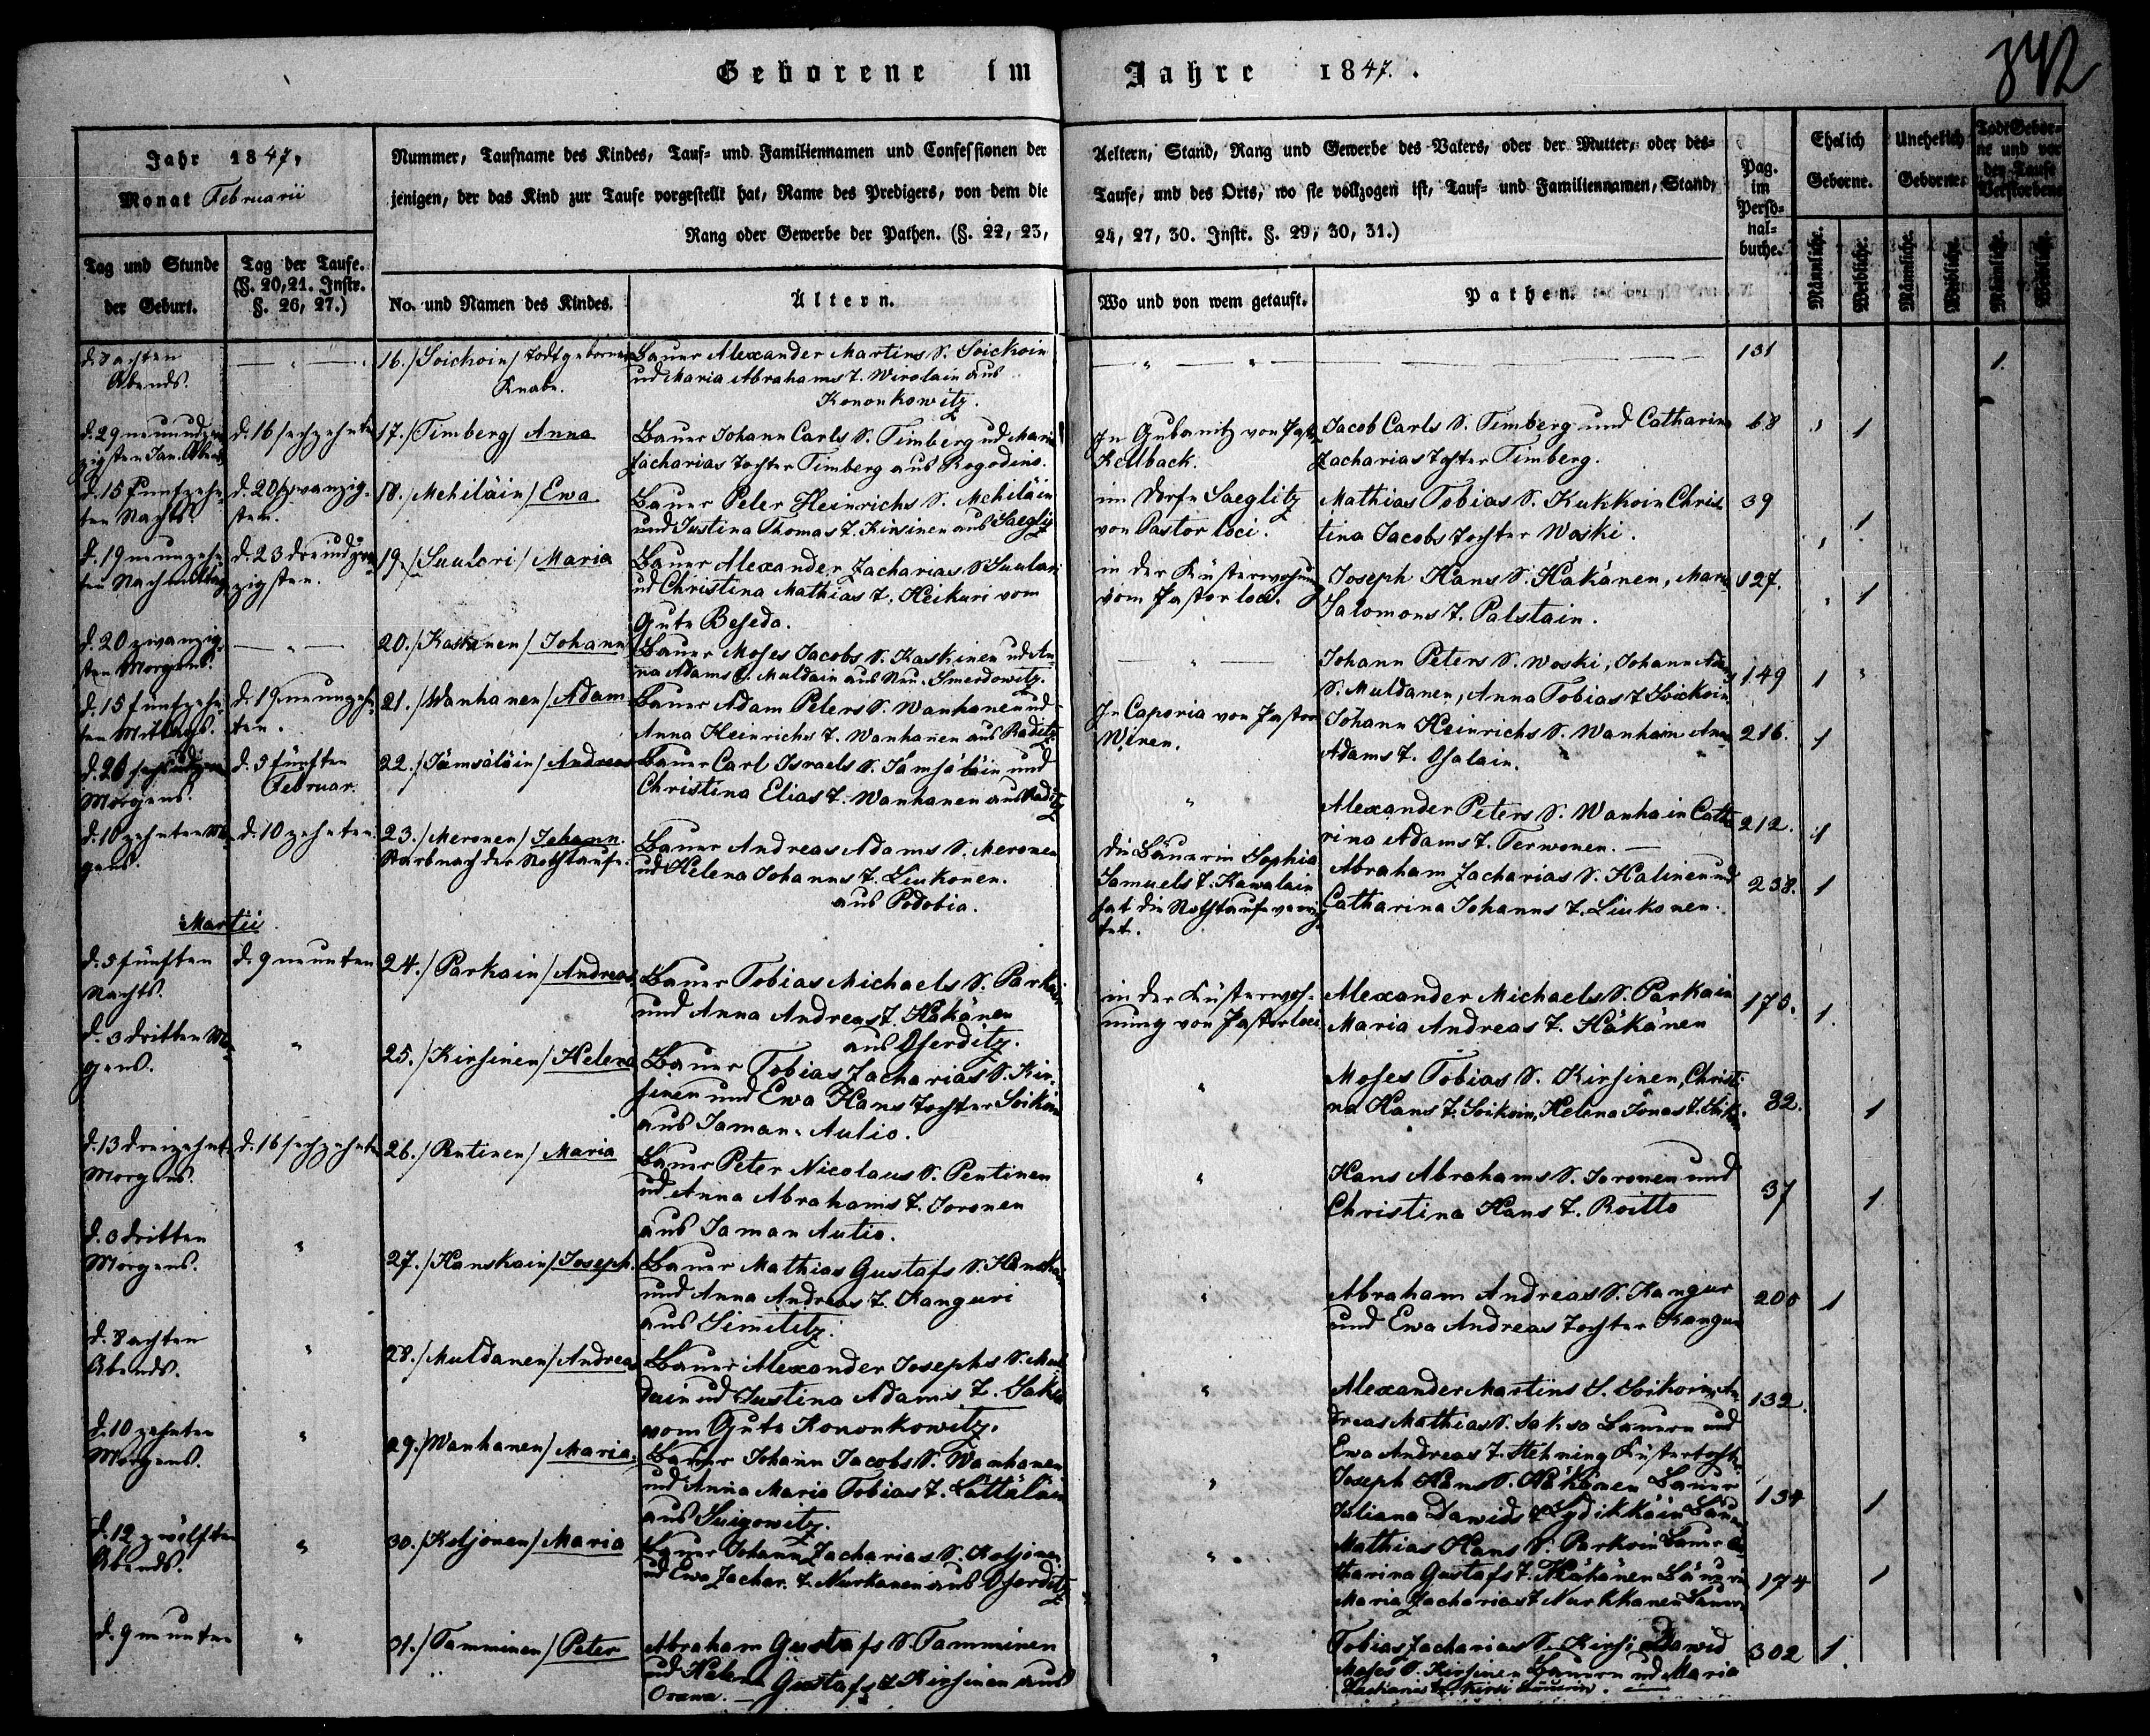 Geborene im Jahre 1847.
842
Jahr 1847,
Monat Februarii
Nummer, Taufname des Kindes, Tauf- und Familiennamen und Confessionen der Aeltern, Stand, Rang und Gewerbe des Vaters, oder der Mutter, oder des-
jenigen, der das Kind zur Taufe vorgestellt hat, Name des Predigers, von dem die Taufe, und des Orts, wo sie vollzogen ist, Tauf- und Familiennamen, Stand,
Rang oder Gewerbe der Pathen. (§. 22, 23, 24, 27, 30. Instr. §. 29, 30, 31.)
Pag.
im
Perso-
nal-
buche.
Ehelich
Geborne.
Unehelich
Geborne.
Todt Gebor-
ne und vor
der Taufe
Verstorbene
Tag und Stunde
der Geburt.
Tag der Taufe.
(§. 20, 21. Instr.
§. 26, 27.)
No. und Namen des Kindes.
Ältern.
Wo und von wem getauft.
Pathen.
Männliche.
Weibliche.
Männliche.
Weibliche.
Männliche.
Weibliche.
d. 8 achten
Abends.
16./Soickoin/ Todtgeborner
Knabe.
Bauer Alexander Martins S. Soickoin
ud Maria Abrahams T. Wirolain aus
Kononkowitz.
131
1.
d. 16 sechzehnten
17./Timberg/ Anna
Bauer Johann Carls S. Timberg ud Maria
Zacharias Tochter Timberg aus Rogodino.
In Gubanitz von Past.
Kellback.
Jacob Carls S. Timberg und Catharina
Zacharias Tochter Timberg.
68
1
d. 15 funfzehn-
ten Nachts.
d. 20 zwanzig-
sten.
18./Mehiläin/ Ewa
Bauer Peter Heinrichs S. Mehiläin
und Justina Thomas T. Kirsinen aus Saeglitz
im Dorfe Saeglitz
von Pastor loci.
Mathias Tobias S. Kukkoin Chris-
tina Jacobs Tochter Woski.
39
1
d. 19 neunzehn-
ten Nachmittag
d. 23 dreiundzwan-
zigsten.
19./Suulari/ Maria
Bauer Alexander Zacharias S. Suulari
ud Christina Mathias T. Heikuri vom
Gute Beseda.
in der Küsterwohnung
vom Pastor loci.
Joseph Hans S. Häkänen, Maria
Salomons T. Palstain.
127.
1
d. 20 zwanzig-
sten Morgens.
20./Kaskinen/ Johann
Bauer Moses Jacobs S. Kaskinen ud An-
na Adams T. Muldain aus Neu-Smerdowitz.
Johann Peters S. Woski, Johann Adams
S. Muldanen, Anna Tobias T. Soickoin.
149
1
d. 15 funfzehn-
ten Mittags.
d. 19 neunzehn-
ten.
21./Wanhanen/ Adam
Bauer Adam Peters S. Wanhanen ud
Anna Heinrichs T. Wanhanen aus Raditz
In Caporia von Pastor
Winen.
Johann Heinrichs S. Wanhain Anna
Adams T.
216.
1
Morgens.
d. 5 fünften
Februar.
22./Jämsäläin/ Andreas
Bauer Carl Israels S. Jamsäläin und
Christina Elias T. Wanhanen aus Raditz
Alexander Peters S. Wanhain Catha-
rina Adams T. Terwonen.
212.
1
d. 10 zehnten Mor-
gens.
d. 10 zehnten.
23./Meronen/ Johann.
Starb nach der Nothtaufe.
Bauer Andreas Adams S. Meronen
ud Helena Johanns T. Liukonen.
aus Podobia.
die Bäuerin Sophia
Samuels T. Kawalain
hat die Nothtaufe verrich-
tet.
Abraham Zacharias S. Halinen und
Catharina Johanns T. Liukonen.
238.
1
Martii
d. 5 fünften
Nachts.
d. 9 neunten
24./Parkain/ Andreas.
Bauer Tobias Michaels S. Parkain
und Anna Andreas T. Häkänen
aus Oserditz.
in der Küsterwoh-
nung von Pastor loci
Alexander Michaels S. Parkain
Maria Andreas T. Häkänen
175.
1.
d. 3 dritten Mor-
gens.
25./Kirsinen/ Helena
Bauer Tobias Zacharias S. Kir-
sinen und Ewa Hans Tochter Soikoin
aus Jaman-Autio.
Moses Tobias S. Kirsinen, Christi-
na Hans T. Soikoin, Helena Jonas T.
32.
1
d. 13 dreizehnt.
Morgens.
d. 16 sechzehnten
26./Pentinen/ Maria
Bauer Peter Nicolaus S. Pentinen
ud Anna Abrahams T. Joronen
aus Jaman Autio.
Hans Abrahams S. Joronen und
Christina Hans T. Roitto
37
1
d. 3 dritten
Morgens.
27./Hanskain/ Joseph.
Bauer Mathias Gustafs S. Hanskain
und Anna Andreas T. Kanguri
aus Simititz.
Abraham Andreas S. Kangur
und Ewa Andreas Tochter Kangur
200
1
d. 8 achten
Abends.
28./Muldanen/ Andreas
Bauer Alexander Josephs S. Mul-
dain ud Justina Adams T. Saksa
vom Gute Kononkowitz.
Alexander Martins S. Soikoin, An-
dreas Mathias S. Saksa Bauern und
Ewa Andreas T. Stehning Küstertochter
132.
d. 10 zehnten
Morgens.
29./Wanhanen/ Maria.
Bauer Johann Jacobs S. Wanhanen
und Anna Maria Tobias T. Lättäläin
aus Suigowitz.
Joseph Hans S. Häkönen Bauer
Juliana Dawids T. Lydikkäin Bäuerin
134
1
d. 12 zwölften
Abends.
30./Koljonen/ Maria
Bauer Johann Zacharias S. Koljonen
ud Ewa Zachar. T. Nurkanen aus Oserditz
Mathias Hans S. Parkoin Bauer Ca-
tharina Gustafs T. Häkänen Bäuerin
Maria Zacharias T. Nurkkanen Bauer
174
1
d. 9 neunten
31./Tamminen/ Peter
Abraham Gustafs S. Tamminen
ud Helena Gustafs T. Kirsinen aus
Orawa.
Tobias Zacharias S. Kirsi Dawid
Moses S. Kirsinen Bauern ud Maria
Zacharias T. Kirsi Bäuerin.
302
1.